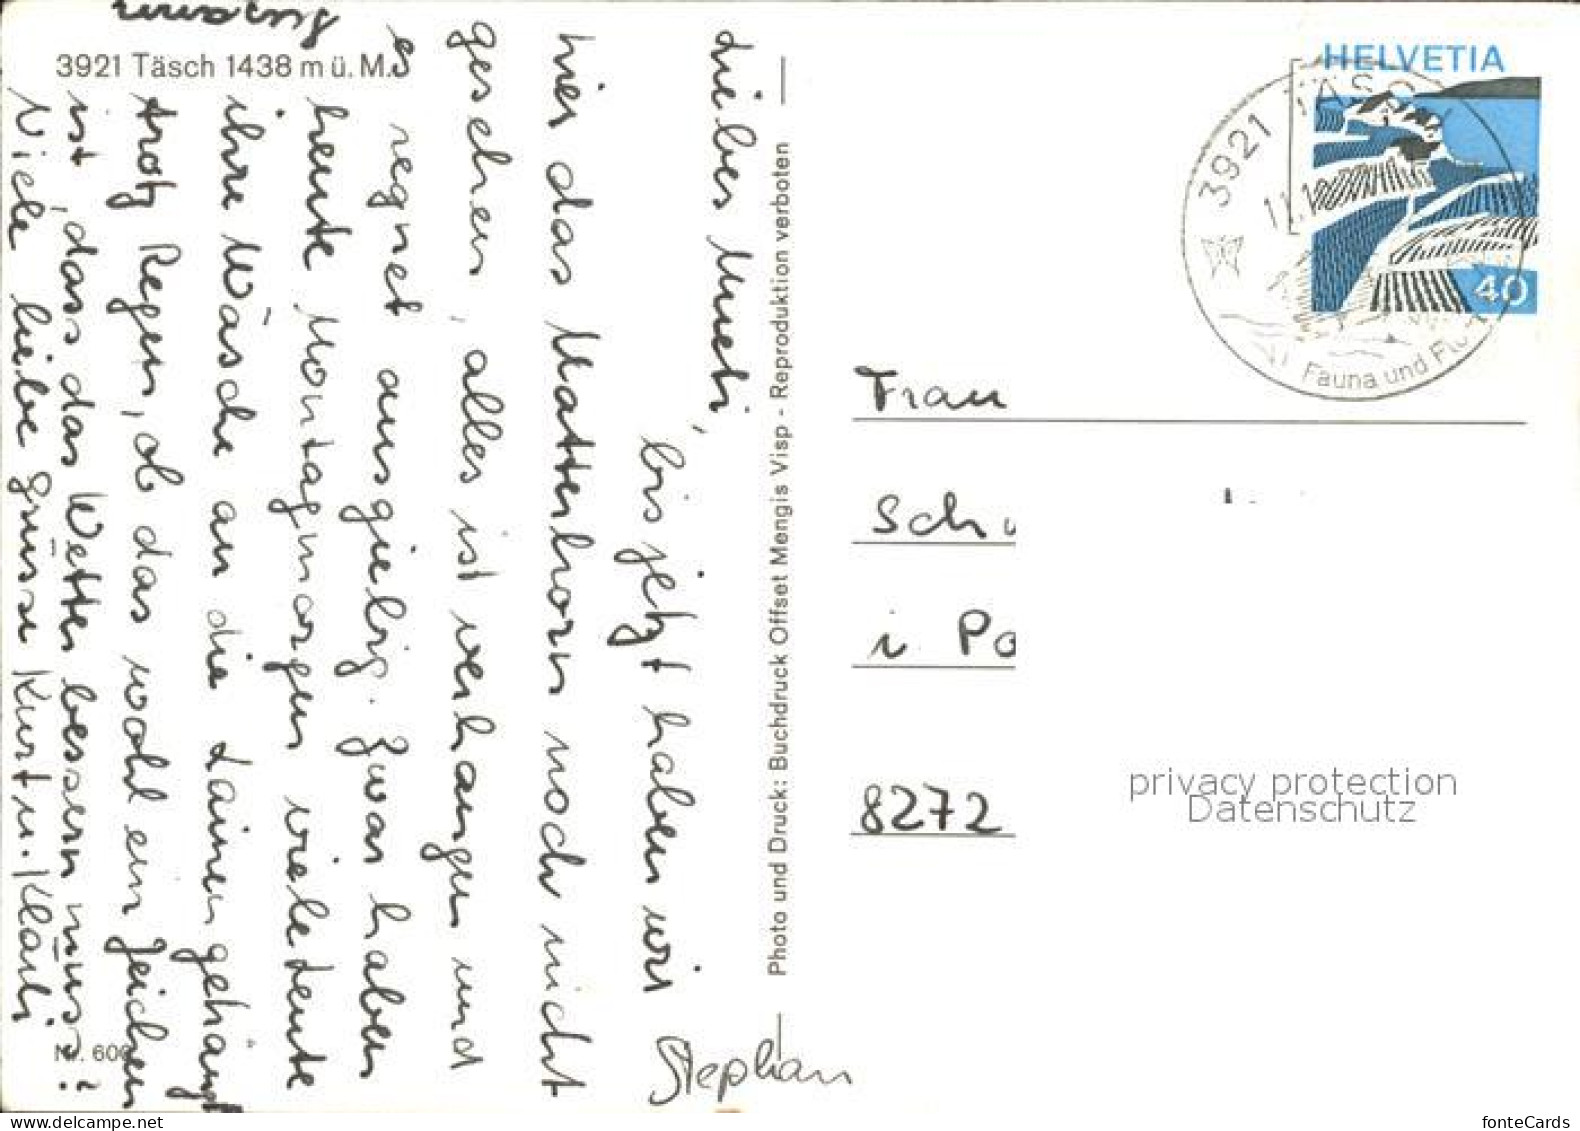 3921 Täsch 1438 m ü. M.
Liebes Mueti,
bis jetzt haben wir
hier das Matterhorn noch nicht
gesehen, alles ist verhangen und
es regnet ausgiebig. Zwar haben
heute Montagmorgen viele Leute
ihre Wäsche an die Leinen gehängt
trotz Regen, ob das wohl ein Zeichen
ist, dass das Wetter bessern muss?
Viele liebe Grüsse Kurt u. Kläri
Stephan
Nr. 606
Photo und Druck: Buchdruck Offset Mengis Visp - Reproduktion verboten
HELVETIA
40
3921 TÄSCH
Fauna und Flora
Frau
Sch
i Po
8272
privacy protection
Datenschutz
delcampe.net
fonteCards